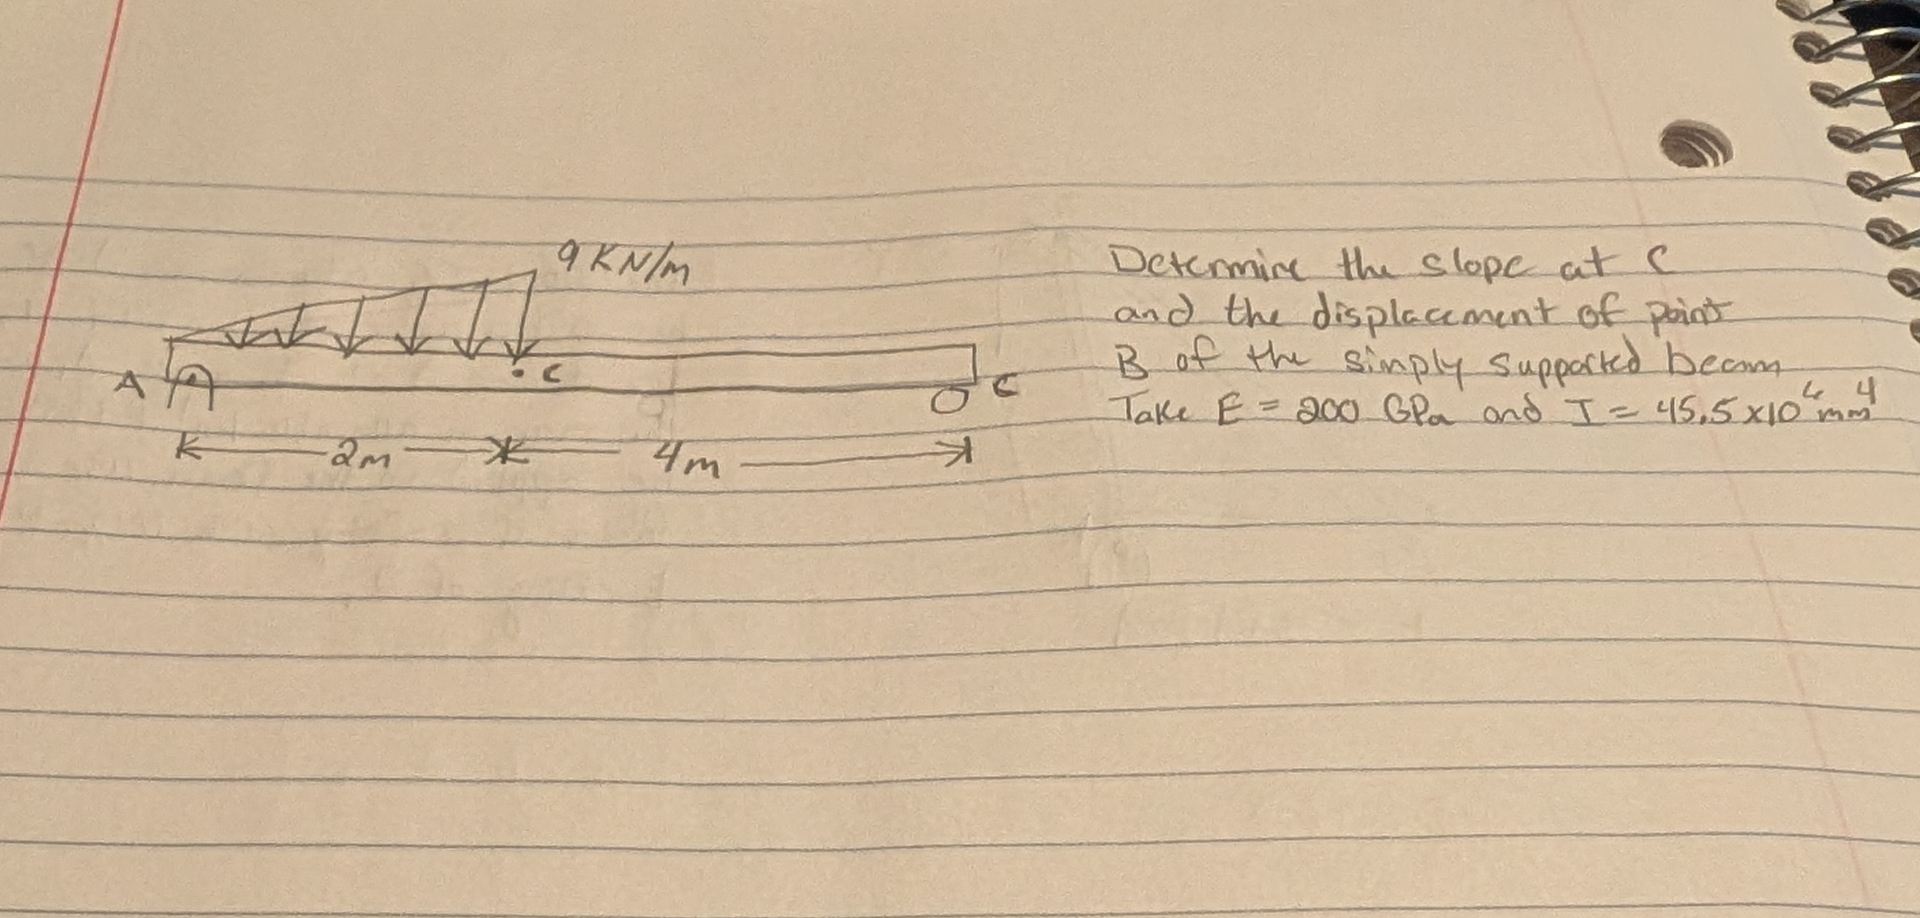 9 KN/m
A
. C
C
2m
4m
Determine the slope at C
and the displacement of point
B of the simply supported beam
Take E = 200 GPa and I = 45.5 x10⁶ mm⁴